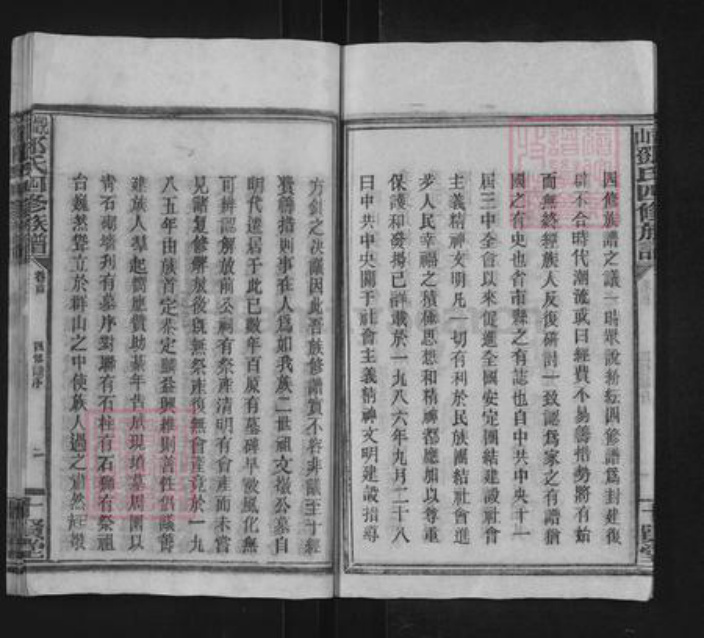 四修族譜之議一時眾說紛紜四修譜為封建復
辟不合時代潮流或曰經費不易籌措勢將有始
而無終經族人反復研討一致認為家之有譜猶
國之有史也省市縣之有誌也自中共中央十一
屆三中全會以來促進全國安定團結建設社會
主義精神文明凡一切有利於民族團結社會進
步人民幸福之積極思想和精神都應加以尊重
保護和發揚已詳載於一九八六年九月二十八
日中共中央關于社會主義精神文明建設指導
方針之決議因此吾族修譜實不容非議至于經
費籌措則事在人為如我族二世祖文徵公墓自
明代遷居于此已數年百原有墓碑早歲風化無
可辨認解放前公祠有祭產清明有會產而未嘗
見諸复修解放後既無祭產復無會產竟於一九
八五年由族首定恭定
建族人羣起響應贊助基年告成現墳墓周圍以
青石砌墻刋有墓序對聯有石柱有石獅有祭祖
台巍然聳立於群山之中使族人過之肅然起敬
氏四修族譜
卷首
四修譜序
二
山鄧氏四修族譜